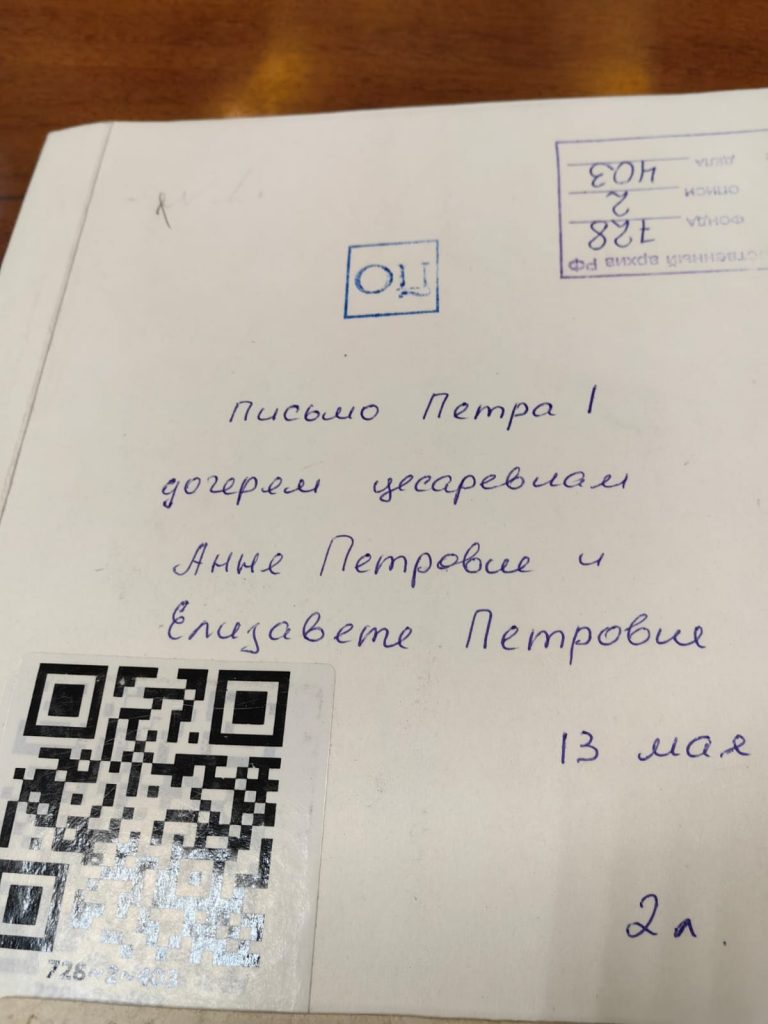 ственный архив РФ
ФОНДА 728
ОПИСИ 2
ДЕЛА 403
ПО
письмо Петра I
дочерям цесаревнам
Анне Петровне и
Елизавете Петровне
13 мая
2 л.
728-2-403